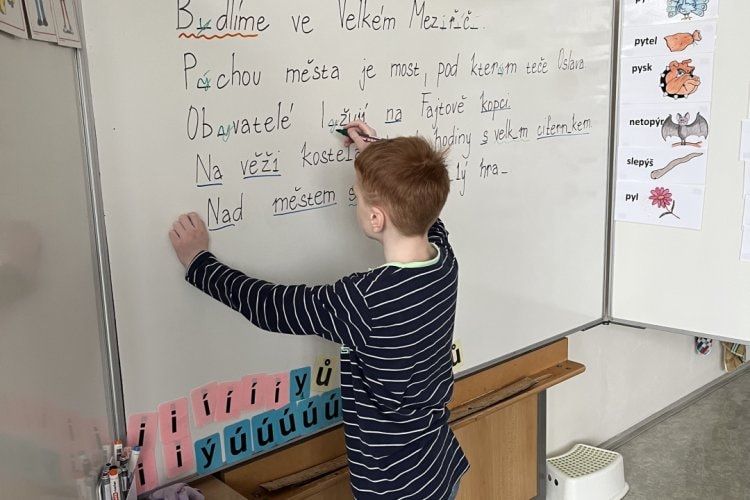 Bydlíme ve Velkém Mez_ř_č_.
Pýchou města je most, pod kterým teče Oslava
Obyvatelé lyžují na Fajtově kopci.
Na věži kostela hodiny s velk_m cifern_kem
Nad městem s lý hra_
pytel
pysk
netopýr
slepýš
pyl
i i í í í í y ů
i i ý ú ú ú ú ú ů